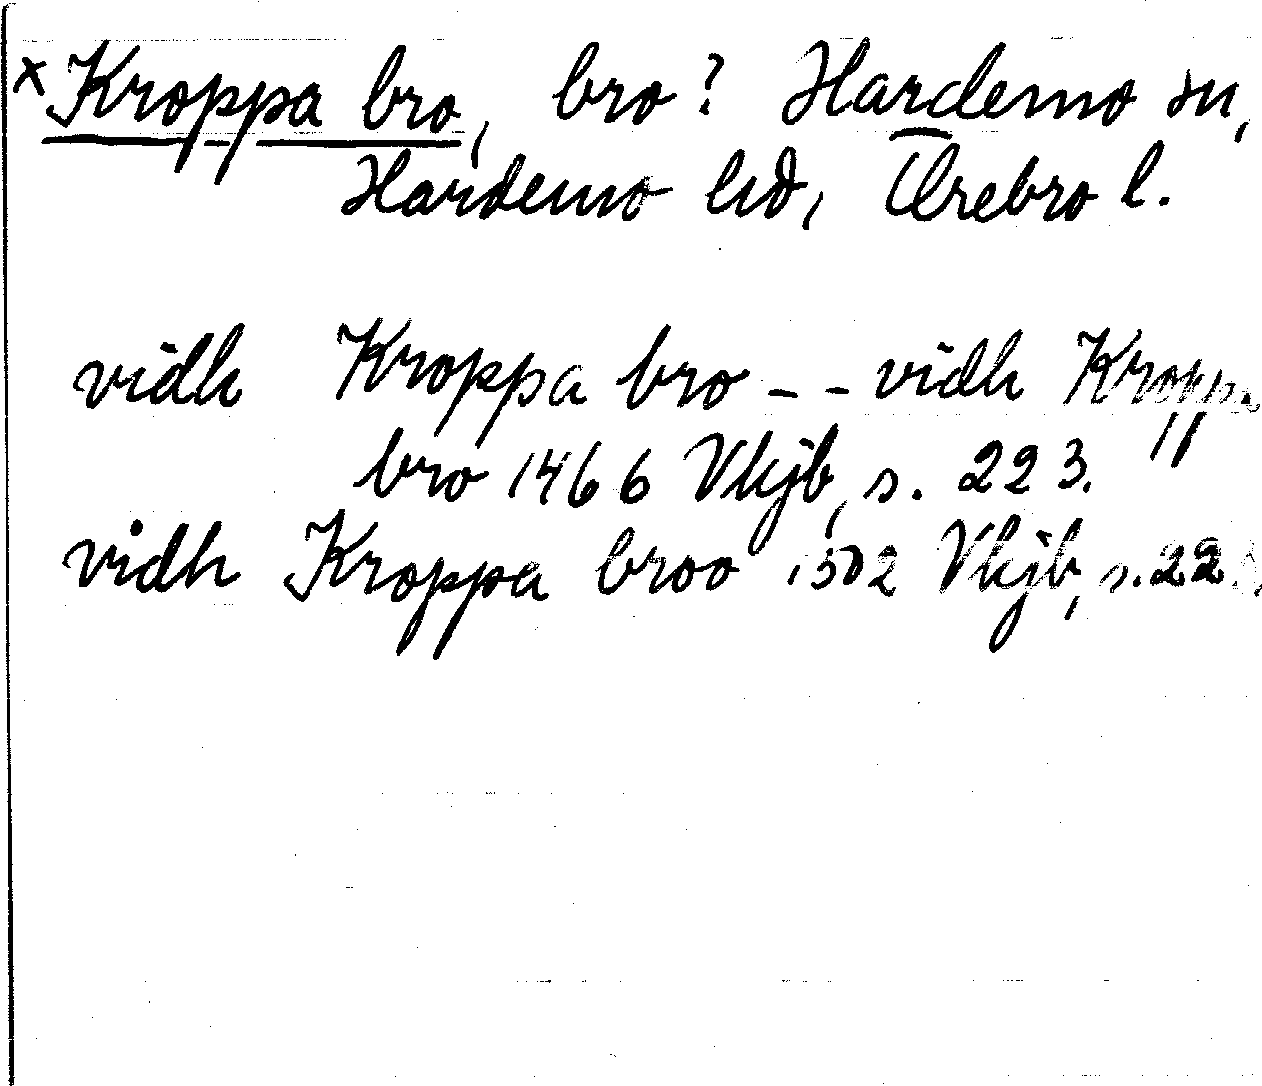 x Kroppa bro, bro? Hardemo sn,
Hardemo hd, Örebro l.
vidh Kroppa bro - - vidh Kroppa
bro 1466 Vkjb, s. 223.
vidh Kroppa broo 1502 Vkjb, s. 22